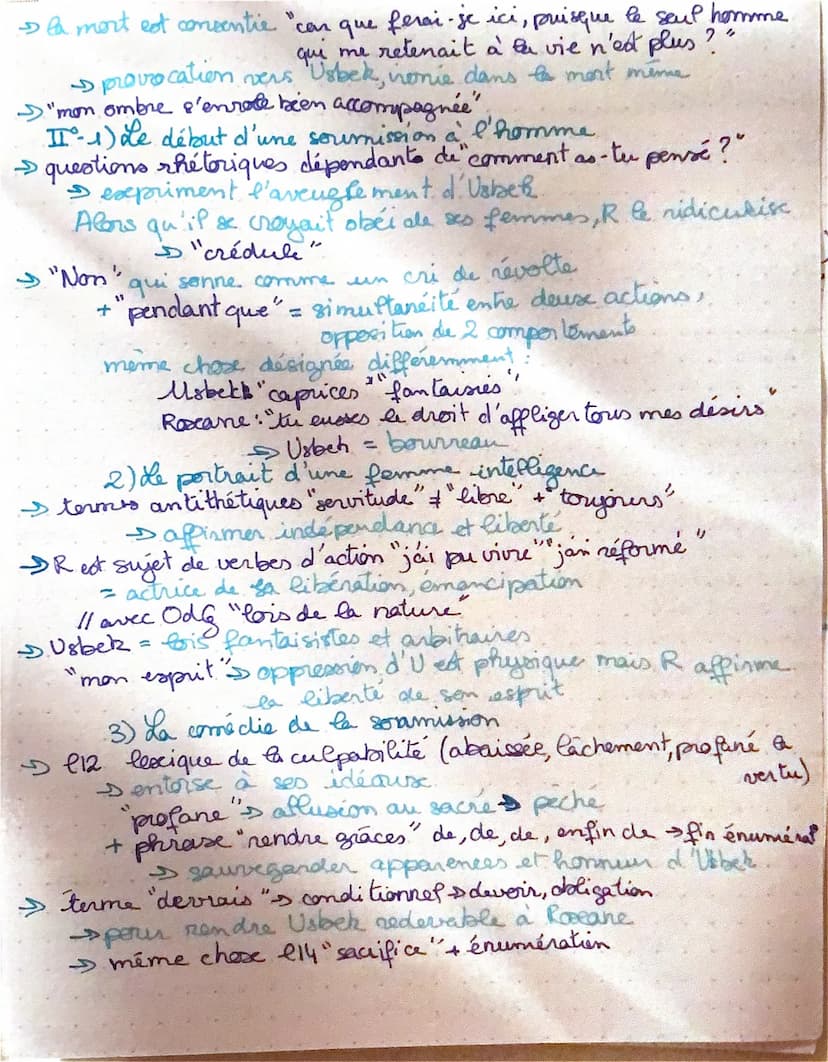 → la mort est consentie "car que ferai-je ici, puisque le seul homme
qui me retenait à la vie n'est plus ?"
→ provocation vers Usbek, ironie dans la mort même
→ "mon ombre s'envole bien accompagnée"
II°-1) Le début d'une soumission à l'homme
→ questions rhétoriques dépendants de "comment as-tu pensé ?"
→ expriment l'aveuglement d'Usbek
Alors qu'il se croyait obéi de ses femmes, R le ridiculise
→ "crédule"
→ "Non" qui sonne comme un cri de révolte
+ "pendant que" = simultanéité entre deux actions,
opposition de 2 comportements
même chose désignée différemment :
Usbek "caprices" "fantaisies"
Roxane : "tu eusses le droit d'affliger tous mes désirs"
→ Usbek = bourreau
2) Le portrait d'une femme intelligence
→ termes antithétiques "servitude" ≠ "libre" + "toujours"
→ affirmer indépendance et liberté
→ R est sujet de verbes d'action "j'ai pu vivre" "j'ai réformé"
= actrice de sa libération, émancipation
// avec OdG "lois de la nature"
→ Usbek = lois fantaisistes et arbitraires
"mon esprit" → oppression d'U est physique mais R affirme
la liberté de son esprit
3) La comédie de la soumission
→ l12 lexique de la culpabilité (abaissée, lâchement, profané la
vertu)
→ entorse à ses idéaux
"profane" → allusion au sacré → péché
+ phrase "rendre grâces" de, de, de, enfin de → fin énumérat°
→ sauvegarder apparences et honneur d'Usbek
→ terme "devrais" → conditionnel → devoir, obligation
→ pour rendre Usbek redevable à Roxane
→ même chose l14 "sacrifice" + énumération